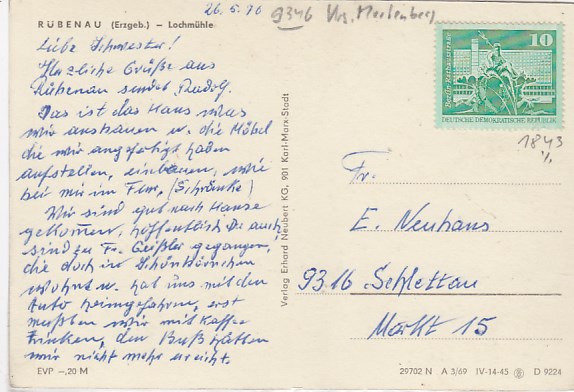 26.5.76
9346 Krs. Marienberg
RÜBENAU (Erzgeb.) – Lochmühle
Liebe Schwester!
Herzliche Grüße aus
Rübenau sendet Rudolf.
Das ist das Haus was
wir ausbauen u. die Möbel
die wir angefertigt haben
aufstellen, einbauen, wie
bei mir im (Schränke)
Wir sind gut nach Hause
gekommen, hoffentlich Du auch,
sind zu Fr. Geißler gegangen,
die doch in
wohnt u. hat uns mit den
Auto heimgefahren, erst
mußten wir mit Kaffee
trinken, den Buß hätten
wir nicht mehr ereicht.
EVP –,20 M
Verlag Erhard Neubert KG, 901 Karl-Marx-Stadt
10
DEUTSCHE DEMOKRATISCHE REPUBLIK
1843
Fr.
E. Neuhaus
9316 Schlettau
Markt 15
29702 N A 3/69 IV-14-45 D 9224